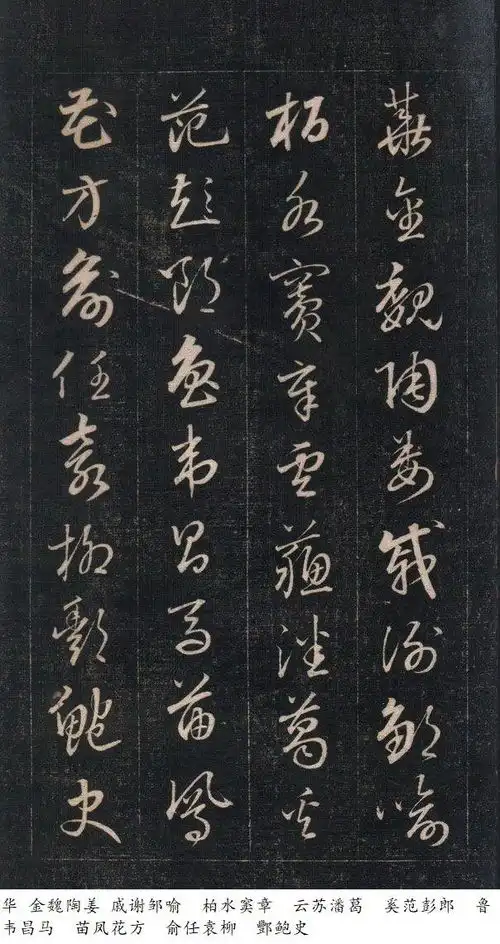 華金魏陶姜戚謝鄒喻
柏水竇章雲蘇潘葛奚
范彭郎魯韋昌馬苗鳳
花方俞任袁柳酆鮑史
华 金魏陶姜 戚谢邹喻 柏水窦章 云苏潘葛 奚范彭郎 鲁
韦昌马 苗凤花方 俞任袁柳 酆鲍史